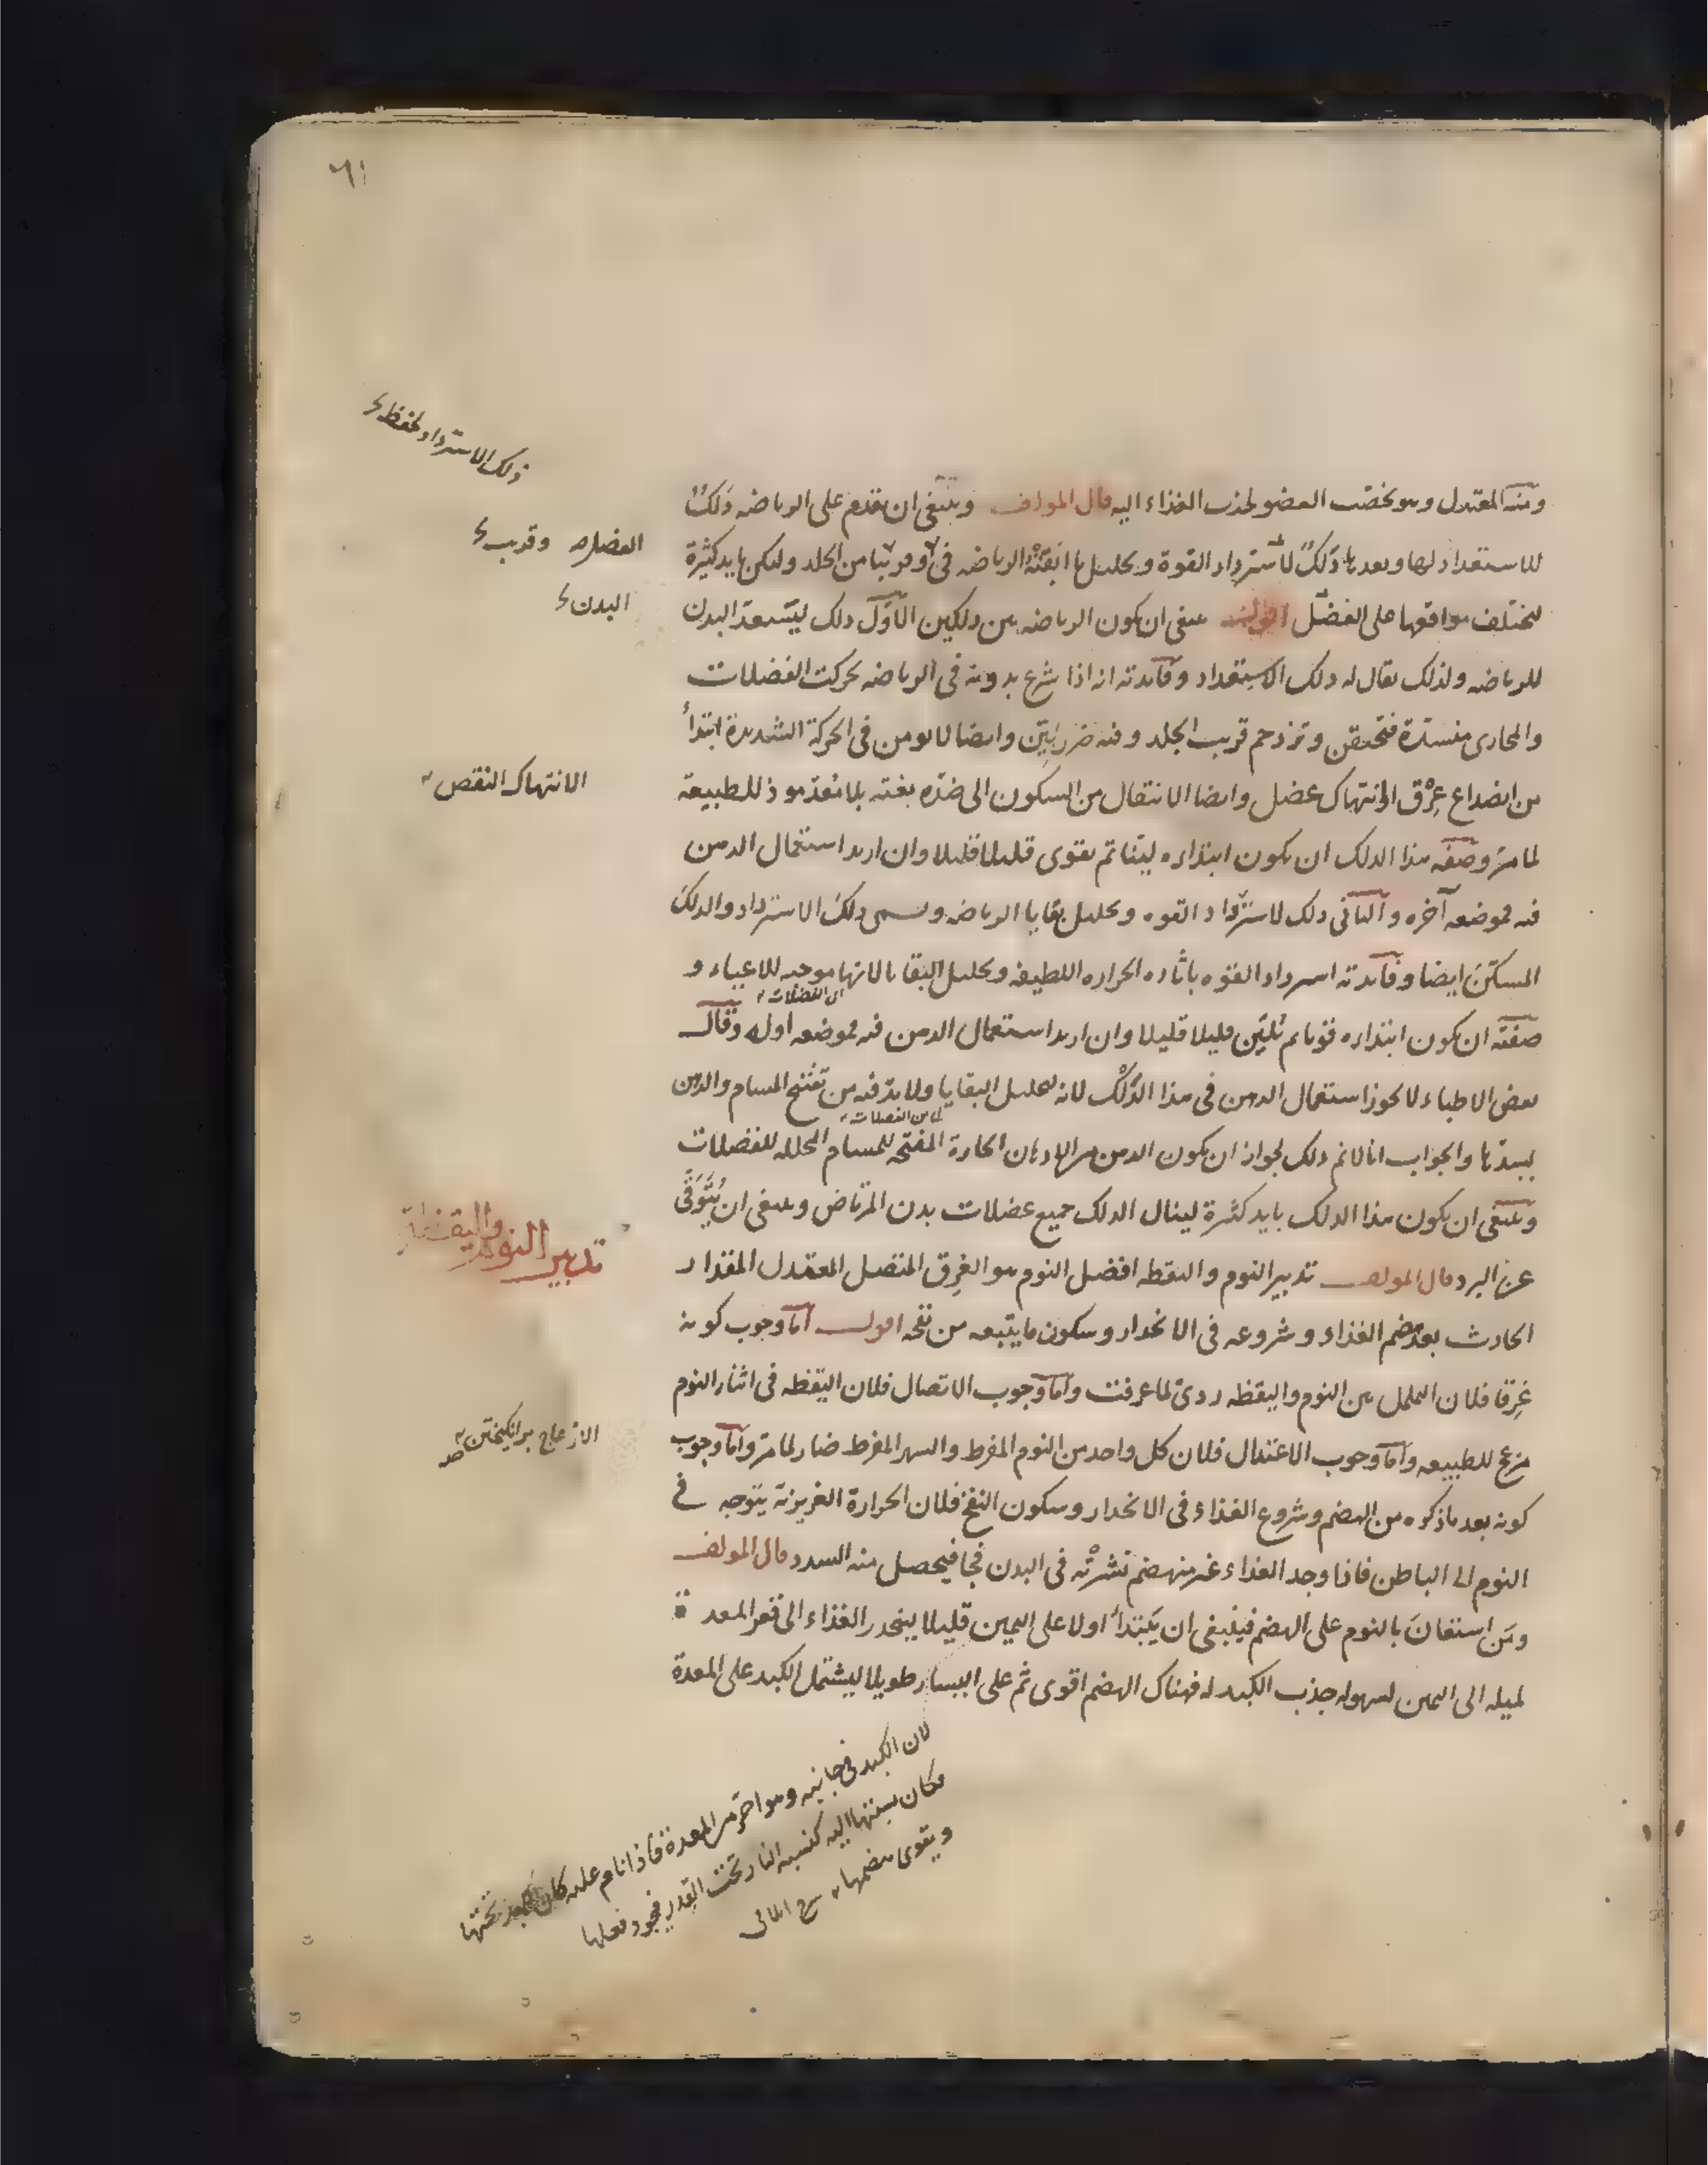 ٦١
ومنه المعتدل وهو يخصب العضو لجذب الغذاء اليه قال المولف وينبغى ان يقدم على الرياضه دلك
للاستعداد لها وبعدها دلك لاسترداد القوة وتحليل ما ابقته الرياضه فى وقريبا من الجلد وليكن بايد كثيرة
ليختلف مواقعها على العضل اقول ينبغى ان يكون الرياضه بين دلكين الاول دلك ليستعد البدن
للرياضه ولذلك يقال له دلك الاستعداد وفائدته انه اذا شرع بدونه فى الرياضه تحركت الفضلات
والمجارى منسدة فتحتقن وتزدحم قريب الجلد وفيه ضرر بين وايضا لا يومن فى الحركة الشديدة ابتدأ
من انصداع عرق او انتهاك عضل وايضا الانتقال من السكون الى ضده بغتة بلا تعد موذ للطبيعة
لما مر وصفه هذا الدلك ان يكون ابتداره لينا ثم يقوى قليلا قليلا وان اريد استعمال الدهن
فيه فموضعه آخره والثانى دلك لاسترداد القوه وتحليل بقايا الرياضه ويسمى دلك الاسترداد والدلك
المسكن ايضا وفائدته استرداد القوه باثاره الحراره اللطيفه وتحليل البقايا لانها موجبه للاعياء و
اى الفضلات
صفته ان يكون ابتداره قويا ثم يلين قليلا قليلا وان اريد استعمال الدهن فيه فموضعه اوله وقال
بعض الاطباء لا يجوز استعمال الدهن فى هذا الدلك لانه لتحليل البقايا ولا بد فيه من تفتيح المسام والدهن
اى من الفضلات
يسدها والجواب انا لانم ذلك لجواز ان يكون الدهن من الادهان الحارة المفتحه للمسام المحلله للفضلات
وينبغى ان يكون هذا الدلك بايد كثيرة لينال الدلك جميع عضلات بدن المرتاض وينبغى ان يتوقى
عن البرد قال المولف تدبير النوم واليقظه افضل النوم هو الغرق المتصل المعتدل المقدار
الحادث بعد هضم الغذاء وشروعه فى الانحدار وسكون ما يتبعه من نفخه اقول اما وجوب كونه
غرقا فلان الململ بين النوم واليقظه ردى لما عرفت واما وجوب الاتصال فلان اليقظه فى اثنار النوم
مزعج للطبيعه واما وجوب الاعتدال فلان كل واحد من النوم المفرط والسهر المفرط ضار لما مر واما وجوب
كونه بعد ما ذكره من الهضم وشروع الغذاء فى الانحدار وسكون النفخ فلان الحرارة الغريزية يتوجه فى
النوم الى الباطن فاذا وجد الغذاء غير منهضم نشرته فى البدن فجا فيحصل منه السدد قال المولف
ومن استعان بالنوم على الهضم فينبغى ان يبتدأ اولا على اليمين قليلا لينحدر الغذاء الى قعر المعدة
لميله الى اليمين لسهوله جذب الكبد له فهناك الهضم اقوى ثم على اليسار طويلا ليشتمل الكبد على المعدة
ذلك الاسترداد لحفظ
وقريب
البدن
الانتهاك النقص
تدبير النوم واليقظة
الازعاج برانكيختن
لان الكبد فى جانبه وهو احر من المعدة فاذا نام عليه كان الكبد تحتها
فكان نسبتها اليه كنسبه النار تحت القدر فيجود فعلها
ويقوى هضمها